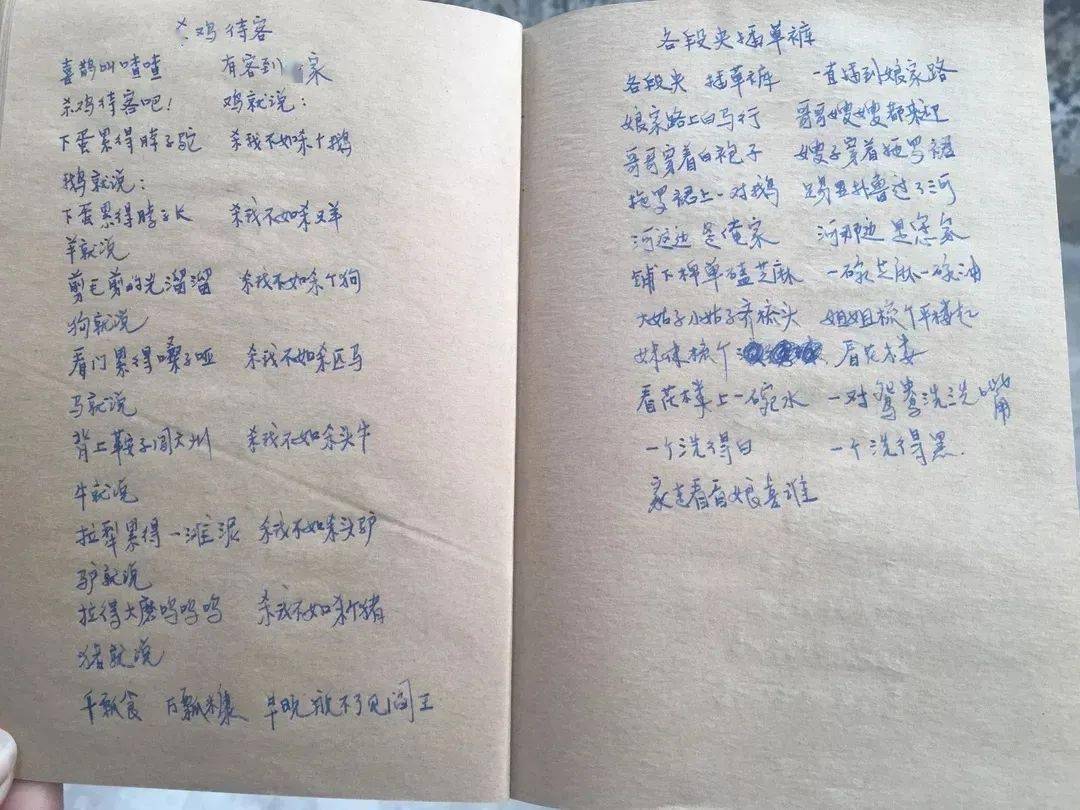 杀鸡待客
喜鹊叫喳喳 有客到 家
杀鸡待客吧! 鸡就说:
下蛋累得脖子驼 杀我不如杀个鹅
鹅就说:
下蛋累得脖子长 杀我不如杀又羊
羊就说
剪毛剪的光溜溜 杀我不如杀个狗
狗就说
看门累得嗓子哑 杀我不如杀匹马
马就说
背上鞍子闯六州 杀我不如杀头牛
牛就说
拉犁累得一滩泥 杀我不如杀头驴
驴就说
拉得大磨呜呜呜 杀我不如杀个猪
猪就说
千瓢食 万瓢糠 早晚放不了见阎王
各段夹插单裤
各段夹 插单裤 一直插到娘家路
娘家路上白马行 哥哥嫂嫂都来迎
哥哥穿着白袍子 嫂子穿着拖罗裙
拖罗裙上一对鹅 扑鲁过了河
河这边是俺家 河那边是您家
铺下 单磕芝麻 一碗芝麻一碗油
大姑子小姑子齐梳头 姐姐梳个平楼
妹妹梳个 看花楼
看花楼上一碗水 一对鸳鸯洗洗嘴
一个洗得白 一个洗得黑.
家走看看娘喜谁